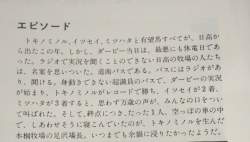 エピソード
トキノミノル、イツセイ、ミツハタと有望馬すべてが、日高か
ら出たこの年。しかし、ダービー当日は、最悪にも休電日であっ
た。ラジオで実況を聞くことのできない日高の牧場の人たち
は、名案を思いついた。道南バスである。バスにはラジオがあ
り、聞ける。身動きできない超満員のバスで、ダービーの実況
が始まり、トキノミノルがレコードで勝ち、イツセイが2着、
ミツハタが3着すると、思わず万歳の声が、みんなの口をつい
て叫ばれた。そして、終点につき、たった1人、空っぽの車の中
で、しあわせそうに寝こんでいたのが、トキノミノルを生んだ
本桐牧場の足沢場長。いつまでも余韻に浸りたかったようだ。